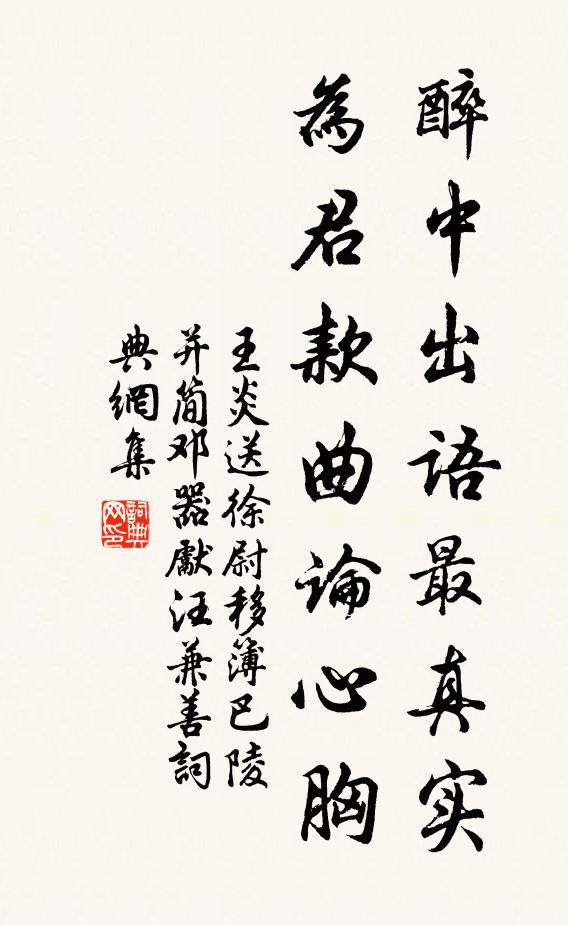 醉中出语最真实
為君款曲論心胸
王炎送徐尉移簿巴陵
并簡邓器獻汪兼善詞
典網集
詞典
网印